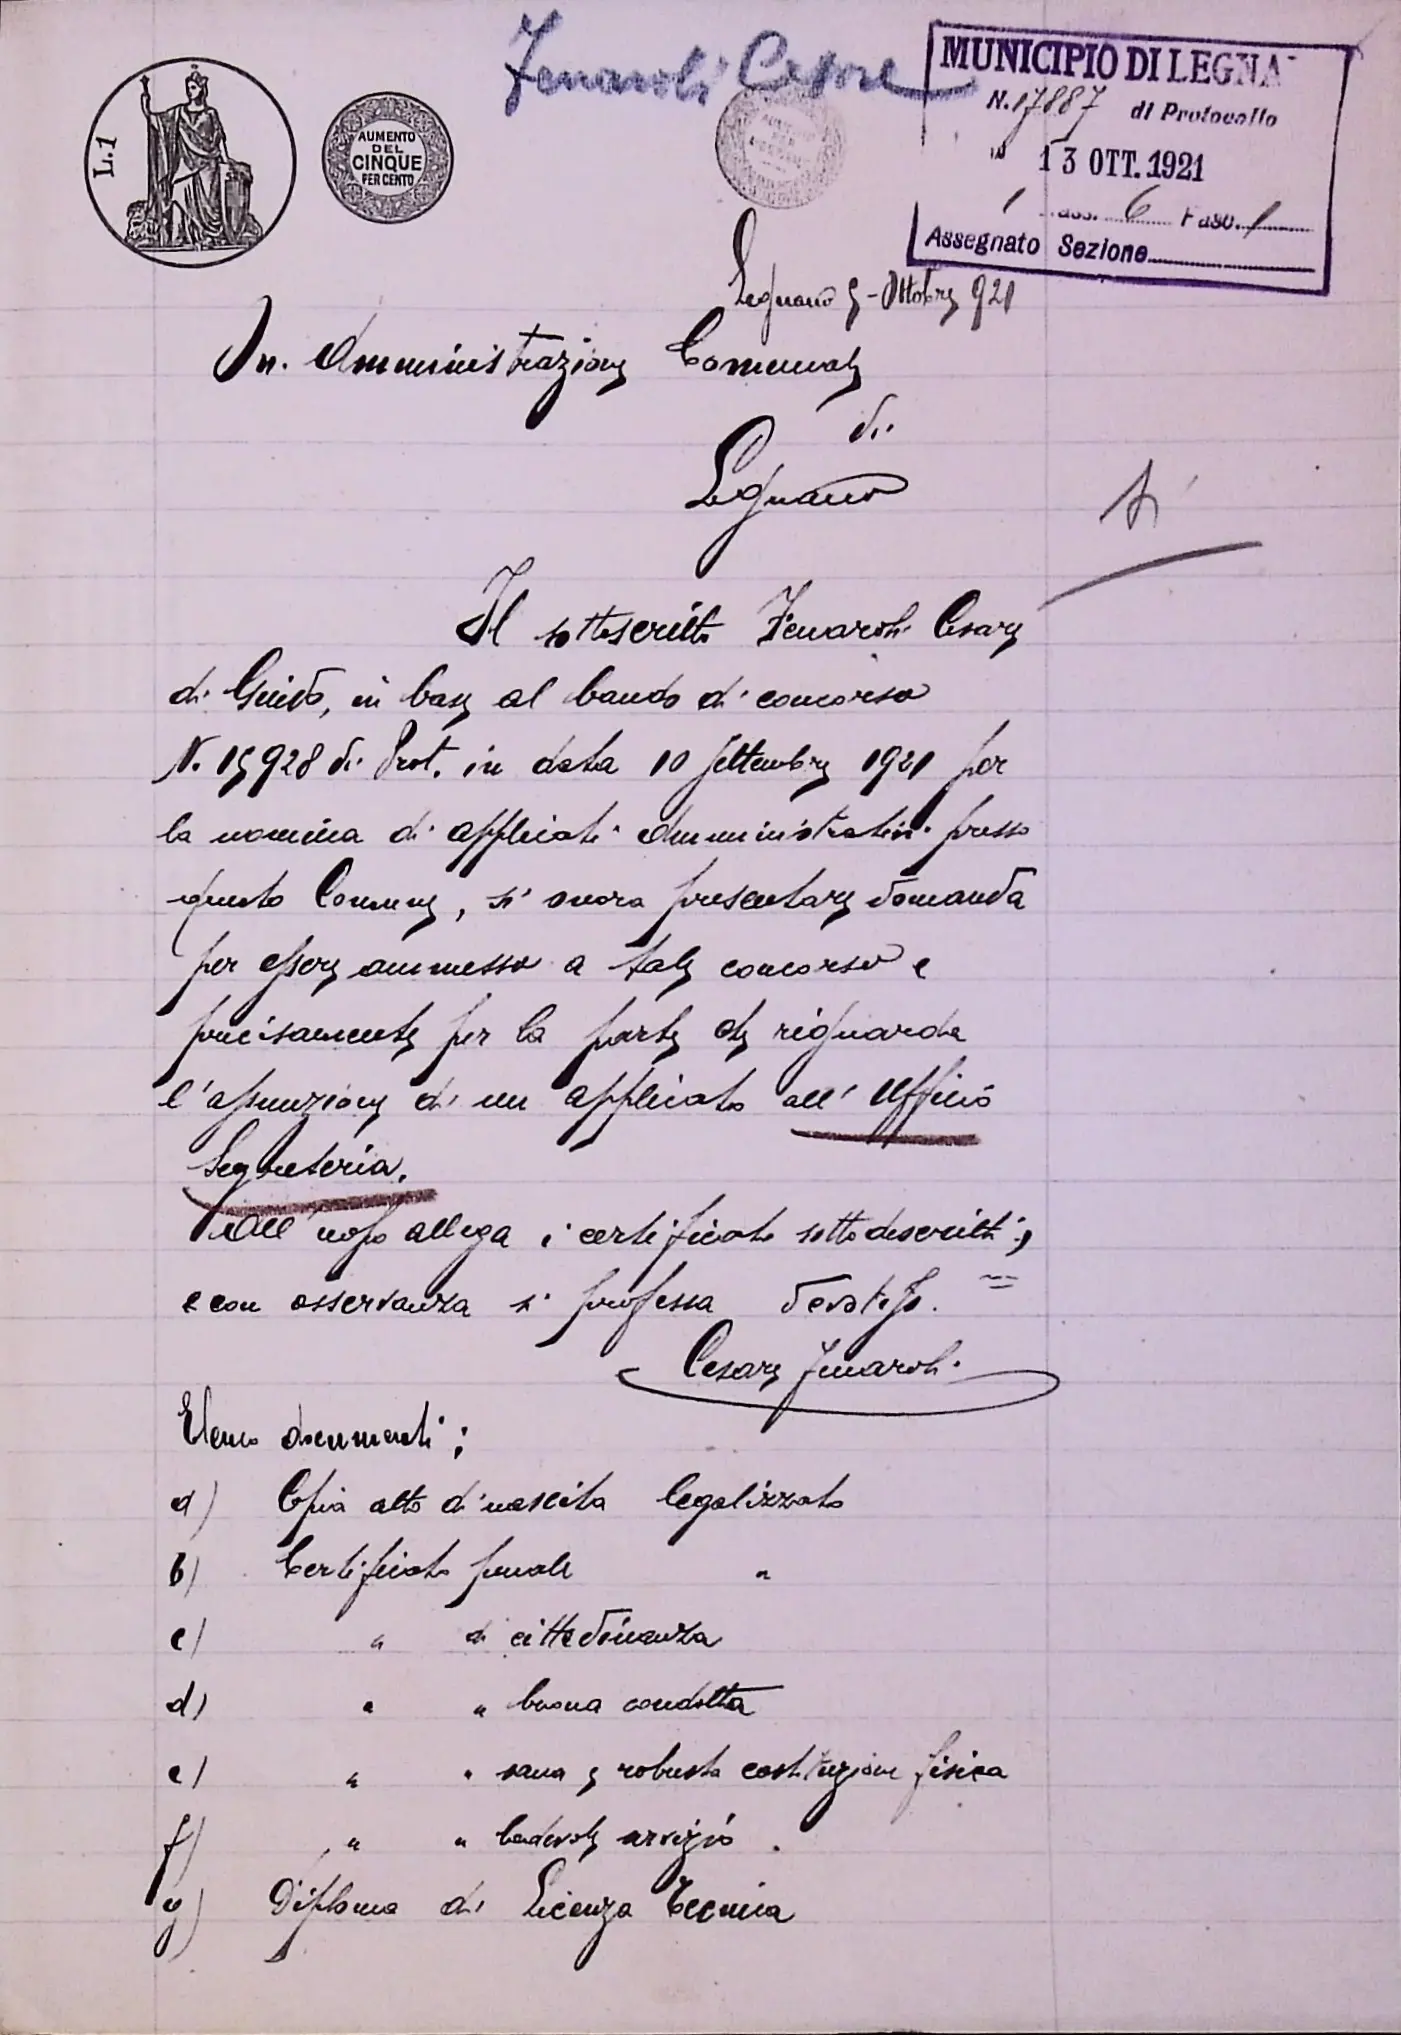 Fenaroli Cesare
MUNICIPIO DI LEGNA
N. 17887 di Protocollo
13 OTT. 1921
1 6 Fasc. 1
Assegnato Sezione
L.1
AUMENTO
DEL
CINQUE
PER CENTO
Legnano 5-Ottobre 921
On. Amministrazione Comunale
di
Legnano
Sì
Il sottoscritto Fenaroli Cesare
di Guido, in base al bando di concorso
N. 15928 di Prot. in data 10 Settembre 1921 per
la nomina di applicati Amministrativi presso
questo Comune, si onora presentare domanda
per essere ammesso a tale concorso e
precisamente per la parte che riguarda
l'assunzione di un applicato all'Ufficio
Segreteria.
All'uopo allega i certificati sottodescritti,
e con osservanza si professa devotiss.
Cesare Fenaroli
Elenco documenti:
a) Copia atto di nascita legalizzato
b) Certificato penale "
c) " di cittadinanza
d) " " buona condotta
e) " " sana e robusta costituzione fisica
f) " " lodevole servizio.
g) Diploma di Licenza Tecnica